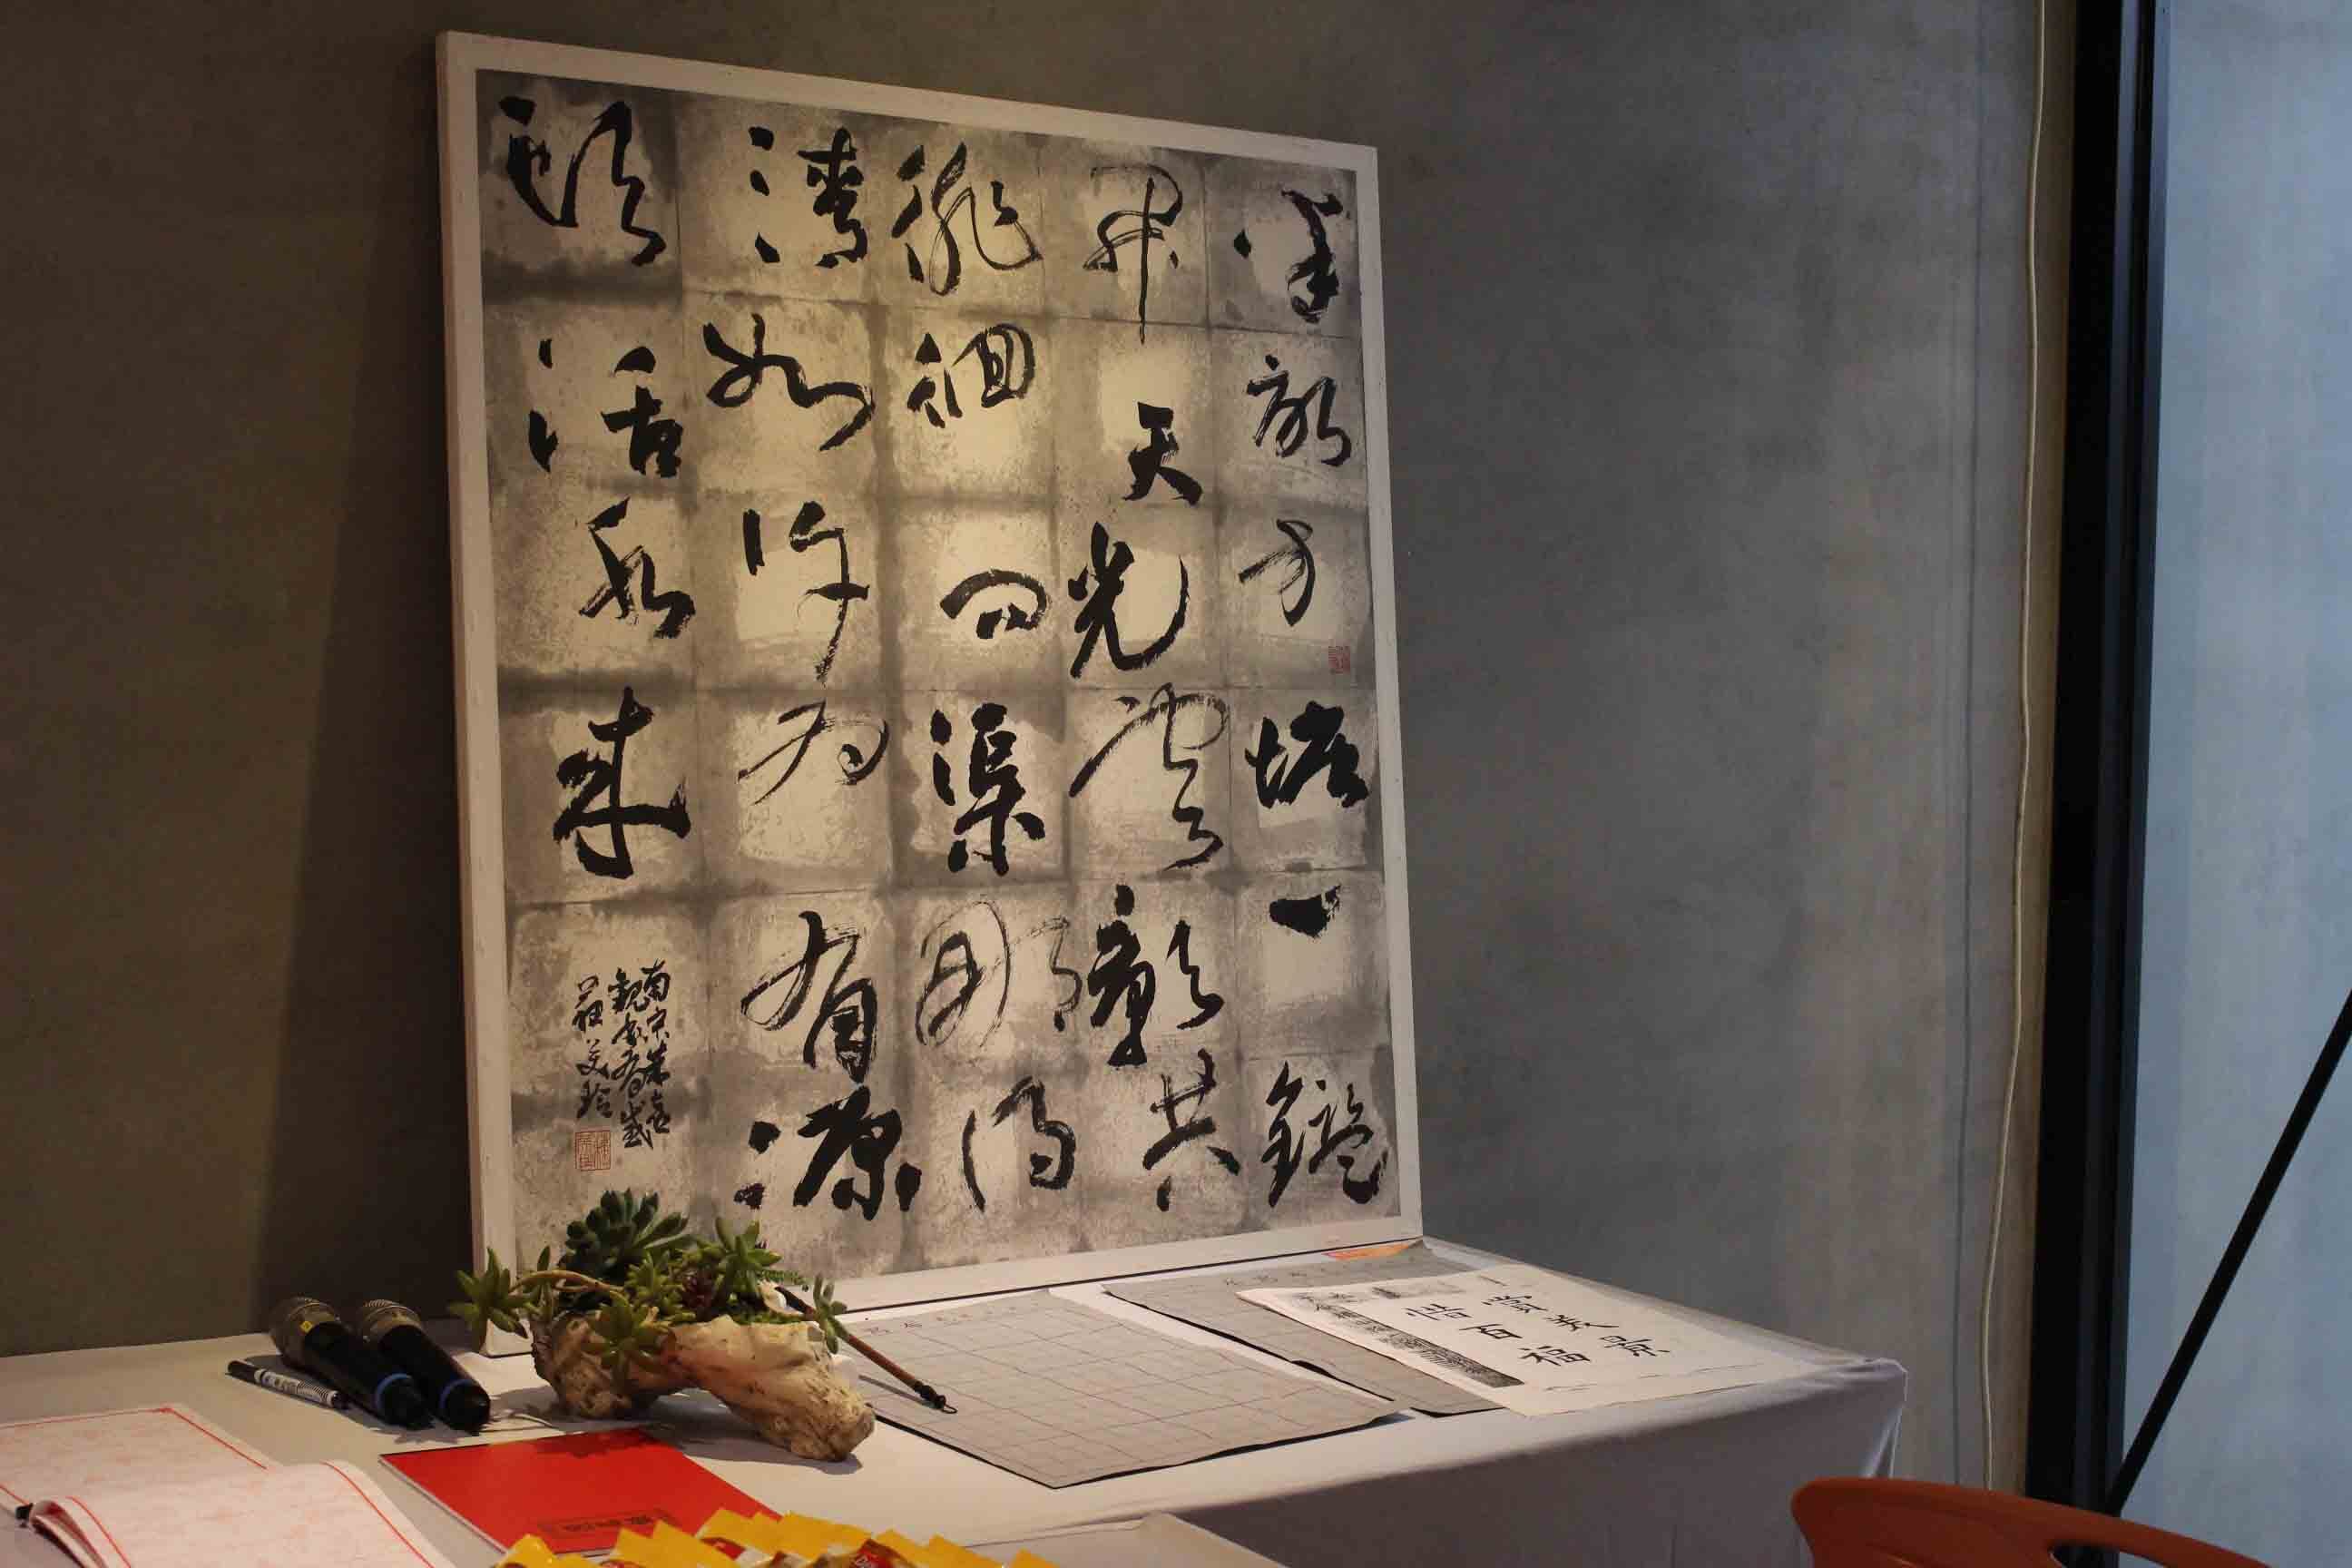 半畝方塘一鑑
開天光雲影共
徘徊問渠那得
清如許為有源
頭活水來
南宋朱熹
觀書有感
美玲
美景
百福